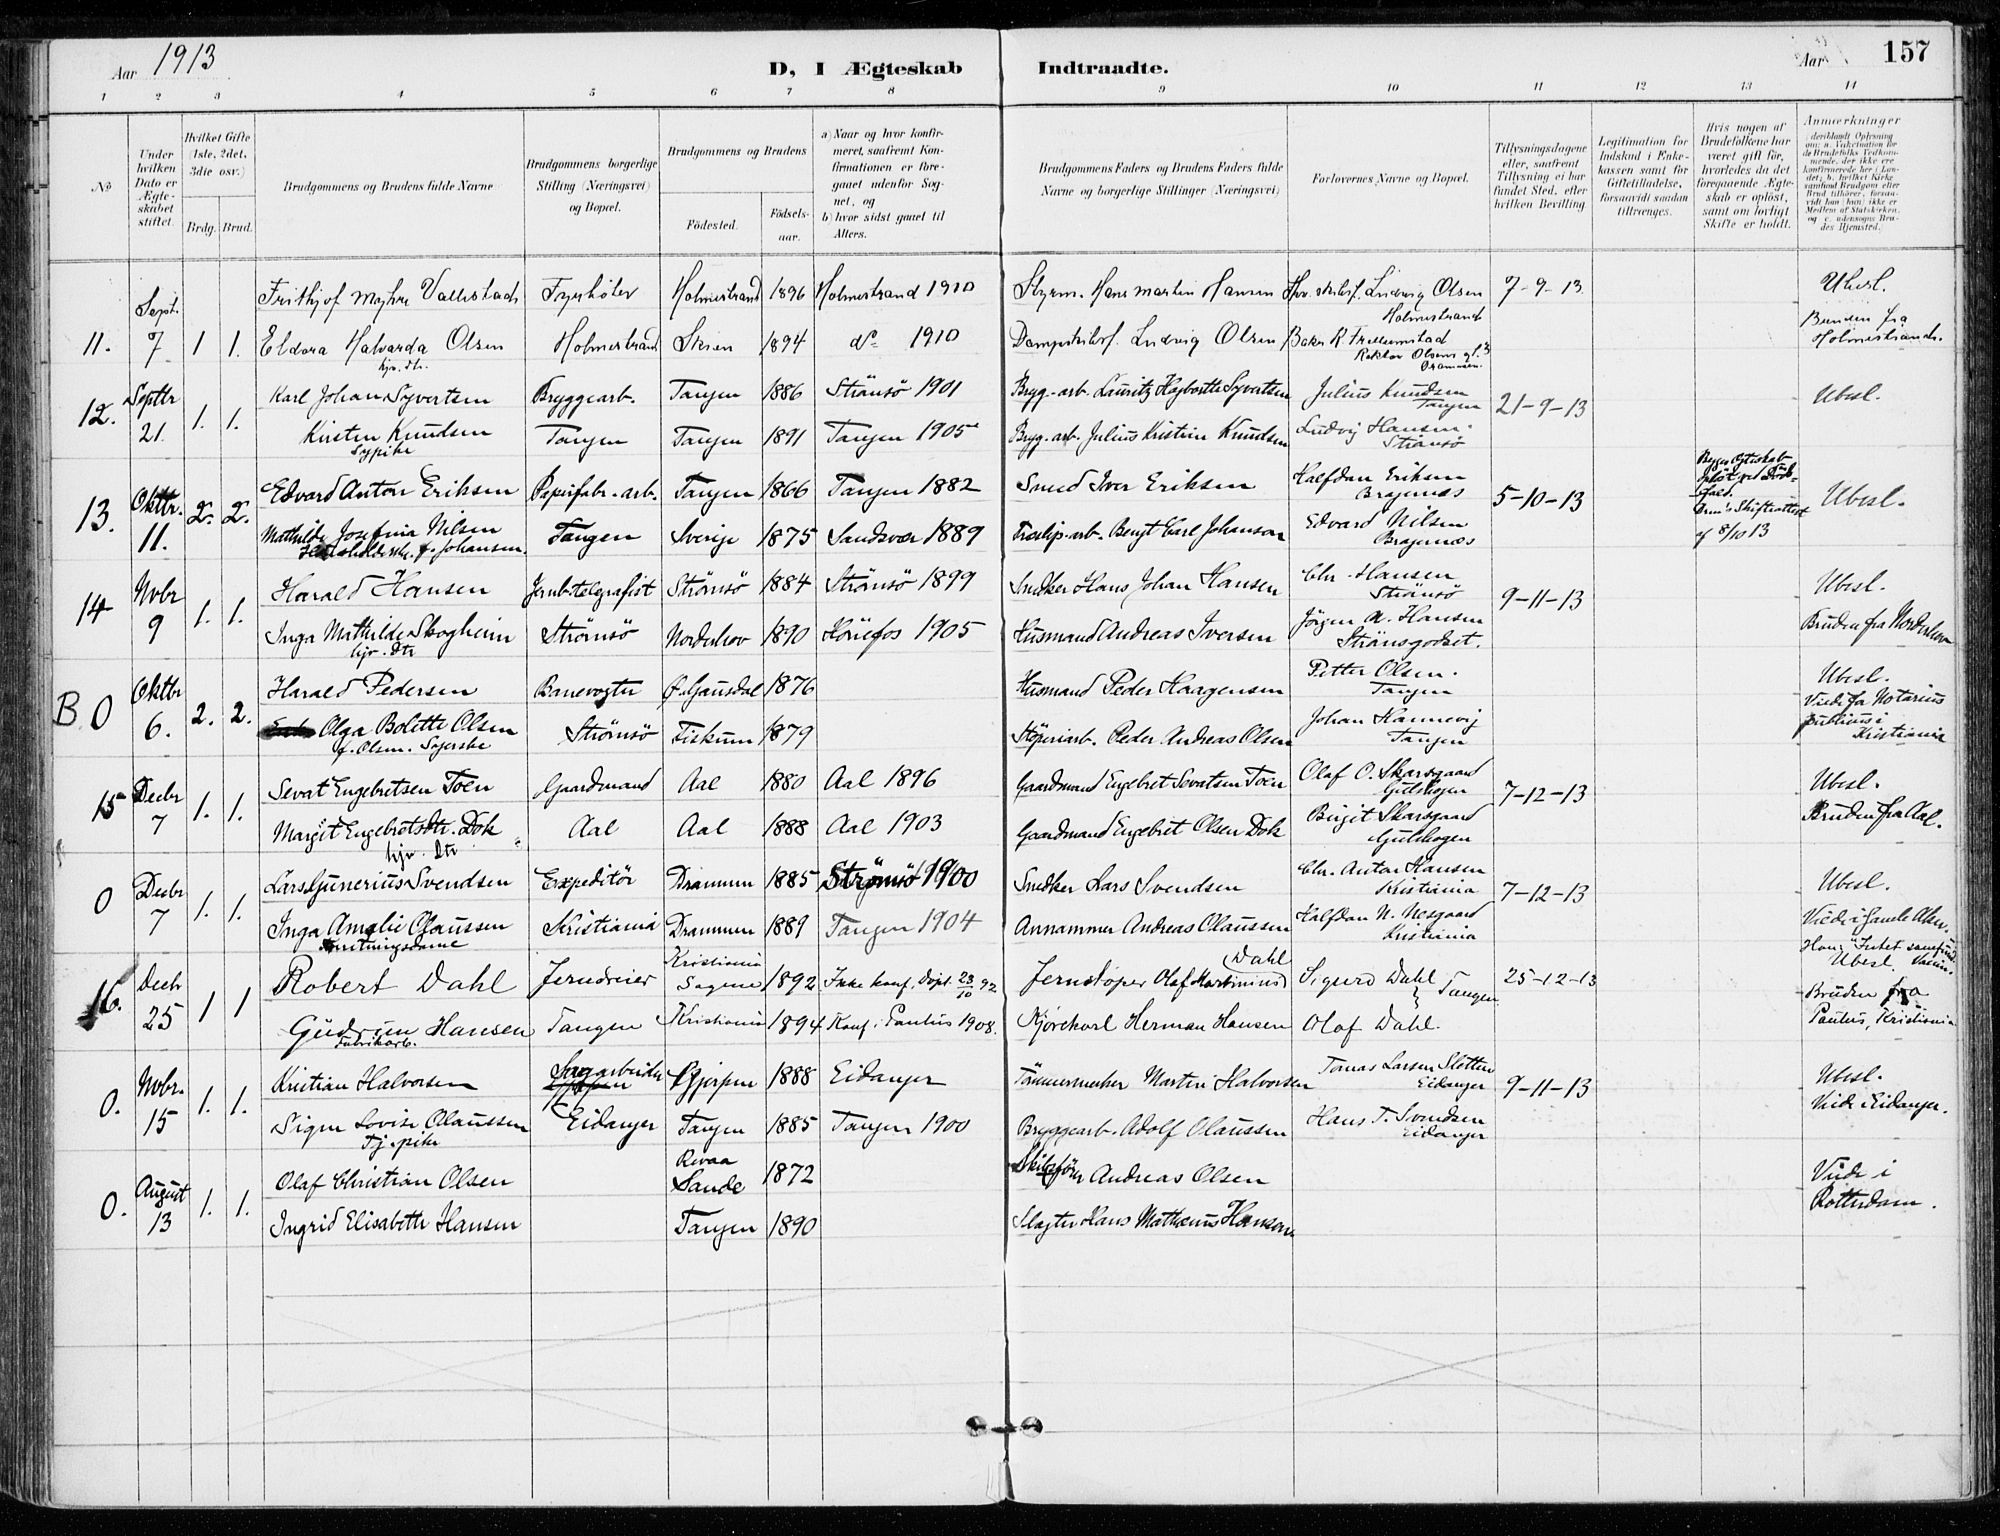 Aar 1913
D, I Ægteskab Indtraadte.
Aar
157
1 2 3 4 5 6 7 8 9 10 11 12 13 14
No
Under hvilken Dato er Ægteskabet stiftet.
Hvilket Gifte (1ste, 2det, 3die osv.)
Brdg. Brud.
Brudgommens og Brudens fulde Navne
Brudgommens borgerlige Stilling (Næringsvei) og Bopæl.
Brudgommens og Brudens
Fødested.
Fødselsaar.
a) Naar og hvor konfirmeret, saafremt Konfirmationen er foregaaet udenfor Sognet, og
b) hvor sidst gaaet til Alters.
Brudgommens Faders og Brudens Faders fulde Navne og borgerlige Stillinger (Næringsvei)
Forlovernes Navne og Bopæl.
Tillysningsdagene eller, saafremt Tillysning ei har fundet Sted, efter hvilken Bevilling
Legitimation for Indskud i Enkekassen samt for Giftetilladelse, forsaavidt saadan tiltrænges.
Hvis nogen af Brudefolkene har været gift før, hvorledes da det foregaaende Ægteskab er opløst, samt om lovligt Skifte er holdt.
Anmærkninger
Sept. Frithjof Myhre Vallestads Fyrbøter Holmestrand 1896 Holmestrand 1910 Styrm. Hans Martin Hansen Ludvig Olsen Holmestrand 7-9-13 Ubesl.
11. 7 1 1. Eldora Halvarda Olsen Holmestrand Skien 1894 do 1910 Dampskibsf. Ludvig Olsen Baker Bruden fra Holmestrand.
hjv. dtr.
12. Septbr 21. 1. 1. Karl Johan Syvertsen Bryggearb. Tangen 1886 Strömsö 1901 Brygg-arb. Lauritz Syvertsen Julius Knudsen Tangen 21-9-13 Ubesl.
Kirsten Knudsen Tangen Tangen 1891 Tangen 1905 Brygg.arb. Julius Kristian Knudsen Ludvig Hansen. Strömsö
Sypike
13. Oktbr. 11. 2. 2. Edvard Anton Eriksen Papirfabr-arb. Tangen 1866 Tangen 1882 Smed Iver Eriksen Halfdan Eriksen Bragernæs 5-10-13 Ubesl.
Mathilde Josefina Nilsen f. Johansen. Tangen Sverige 1875 Sandsvær 1889 Træslip-arb. Bengt Carl Johanson Edvard Nilsen Bragernæs
Skifteattest af 8/10 13
14 Nvbr 9 1. 1. Harald Hansen Jernb.telegrafist Strömsö 1884 Strömsö 1899 Snedker Hans Johan Hansen Chr. Hansen Strömsö 9-11-13 Ubesl.
Inga Mathilde Skogheim Strömsö Norderhov 1890 Hönefos 1905 Husmand Andreas Iversen Jörgen A. Hansen Strömsgodset. Bruden fra Norderhov
hjv. Dtr
B. 0 Oktbr 6. 2. 2. Harald Pedersen Banevogter Ø. Gausdal 1876 Husmand Peder Haagensen Petter Olsen. Tangen Ubesl.
Olga Bolette Olsen Strömsö Fiskum 1879 Peder Andreas Olsen Johan Kannevig Tangen Viede fra Notarius publicus i Kristiania
f. Olsen. Syerske
15 Decbr 7 1. 1. Sevat Engebretsen Toen Gaardmand Aal 1880 Aal 1896 Gaardmand Engebret Sevatsen Toen Olaf O. Skarsgaard Gulskogen 7-12-13 Ubesl.
Margit Engebretsdtr. Dok Aal Aal 1888 Aal 1903 Gaardmand Engebret Olsen Dok Birgit Skarsgaard Gulskogen Bruden fra Aal.
hjv. Dtr
0 Decbr 7 1. 1. Lars Gunerius Svendsen Expeditör Drammen 1885 Strömsö 1900 Snedker Lars Svendsen Chr. Anton Hansen Kristiania 7-12-13 Ubesl.
Inga Amalie Olaussen Kristiania Drammen 1889 Tangen 1904 Annammer Andreas Olaussen Halfdan N. Nesgaard Kristiania Viede i Gamle Aker.
Forretningsdame
16. Decbr 25 1 1 Robert Dahl Jerndreier Kristiania Sagene 1892 Ikke konf. Døpt 23/10 92 Jernstøper Olaf Martinius Dahl Sigurd Dahl Tangen 25-12-13 Ubesl.
Gudrun Hansen Tangen Kristiania 1894 Konf. i Paulus 1908. Kjørekarl Herman Hansen Olaf Dahl. Bruden fra Paulus, Kristiania
Fabrikarb.
0. Nvbr. 15 1. 1. Kristian Halvorsen Sagarbeider Gjerpen 1888 Eidanger Tömmermester Martin Halvorsen Tomas Larsen Slotten Eidanger 9-11-13 Ubesl.
Signe Lovise Olaussen Eidanger Tangen 1885 Tangen 1900 Bryggearb. Adolf Olaussen Hans T. Svendsen Eidanger Viede i Eidanger.
Tj. pike
0. August 13 1. 1. Olaf Christian Olsen Revaa Sande 1872 Skibsförer Andreas Olsen Viede i Rotterdam.
Ingrid Elisabeth Hansen Tangen 1890 Slagter Hans Mathæus Hansen.